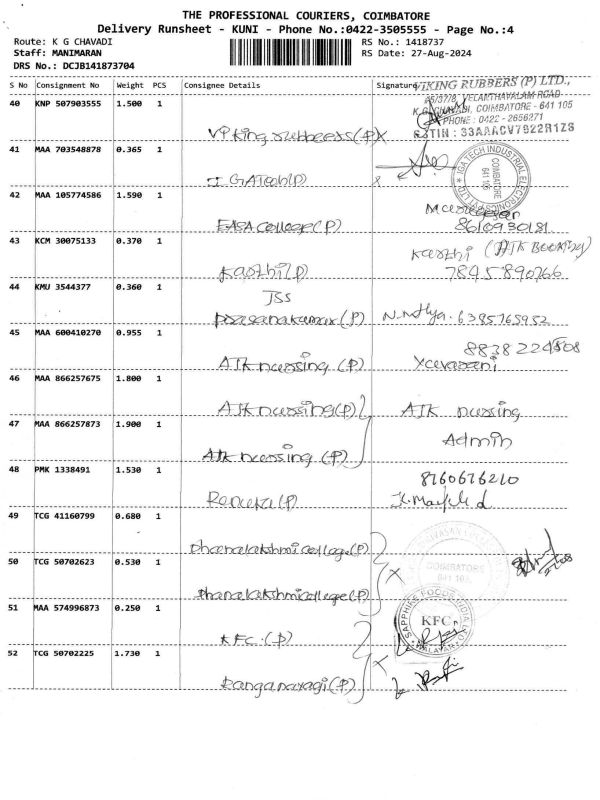 THE PROFESSIONAL COURIERS, COIMBATORE
Delivery Runsheet - KUNI - Phone No.:0422-3505555 - Page No.:4
Route: K G CHAVADI RS No.: 1418737
Staff: MANIMARAN RS Date: 27-Aug-2024
DRS No.: DCJB141873704
S No Consignment No Weight PCS Consignee Details Signature
VIKING RUBBERS (P) LTD.,
VELANTHAVALAM ROAD
COIMBATORE - 641 105
PHONE : 0422 - 2656271
40 KNP 507903555 1.500 1
Viking rubbeess (P) X
41 MAA 703548878 0.365 1
I GATech (P) X
IGA TECH INDUSTRIAL ELECTRONICS (P) LTD
COIMBATORE
641 105
42 MAA 105774586 1.590 1
EASA College (P) 8610930181
43 KCM 30075133 0.370 1
Karthi (P) Karthi (AJK Booking)
7845890766
44 KMU 3544377 0.360 1
JSS
prasanakumar (P) N.Nithya. 6385765952
45 MAA 600410270 0.955 1
8838224508
AJK nursing (P)
46 MAA 866257675 1.800 1
AJK nursing (P) AJK nursing
47 MAA 866257873 1.900 1
Admin
AJK nursing (P)
48 PMK 1338491 1.530 1
8760676210
Renuka (P)
49 TCG 41160799 0.680 1
Dhanalakshmi college (P)
50 TCG 50702623 0.530 1
COIMBATORE
641 105
X
Dhanalakshmi college (P)
51 MAA 574996873 0.250 1
SAPPHIRE FOODS INDIA LTD
KFC
WALAYAR
KFC. (P)
52 TCG 50702225 1.730 1
X
Ranganayagi (P)